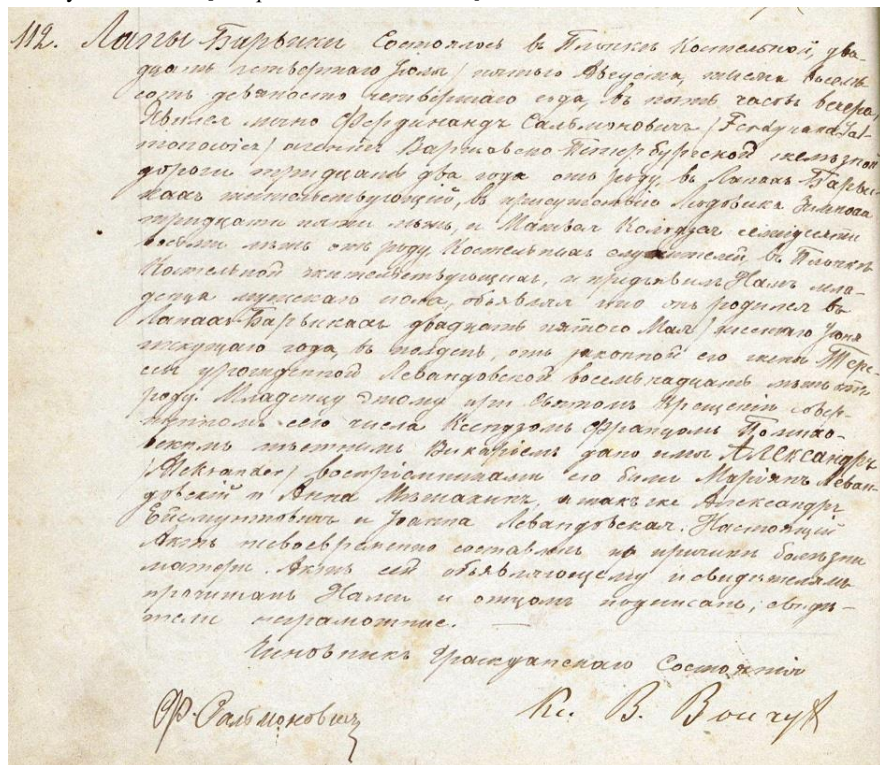 112. Лапы Барвики Состоялось въ Плонкѣ Костельной, два-
дцать четвертаго Іюля / пятаго Августа, тысяча восемь
сотъ девяносто четвертаго года, въ пять часовъ вечера,
Явился лично Фердинандъ Сальмоновичъ / Ferdynand Sal-
monowicz / Варшавско-Петербургской желѣзной
дороги тридцать два года отъ роду, въ Лапахъ-Барви-
кахъ жительствующій, въ присутствіи Людовика
тридцати пяти лѣтъ, и Матвѣя семидесяти
восьми лѣтъ отъ роду, Костельныхъ служителей, въ Плонкѣ
Костельной жительствующихъ, и предъявилъ Намъ мла-
денца мужскаго пола, объявляя что онъ родился въ
Лапахъ-Барвикахъ двадцать пятого Мая / шестаго Іюня
текущаго года, въ полдень, отъ законной его жены Тере-
сы урожденной Левандовской восемьнадцать лѣтъ отъ
роду. Младенцу этому при Святомъ Крещеніи совер-
шенномъ сего числа Ксендзомъ Францомъ
мѣстнымъ Викаріемъ дано имя Александръ
/ Aleksander / воспріемниками его были Маріянъ Леван-
довскій и Анна а также Александръ
Ейсмунтовичъ и Іоанна Левандовская. Настоящій
Актъ несвоевременно составленъ по причинѣ болѣзни
матери. Актъ сей объявляющему и свидѣтелямъ
прочитанъ Нами и отцомъ подписанъ; свидѣ-
тели неграмотные.
Чиновникъ Гражданскаго Состоянія
Ф. Сальмоновичъ Кс. В.